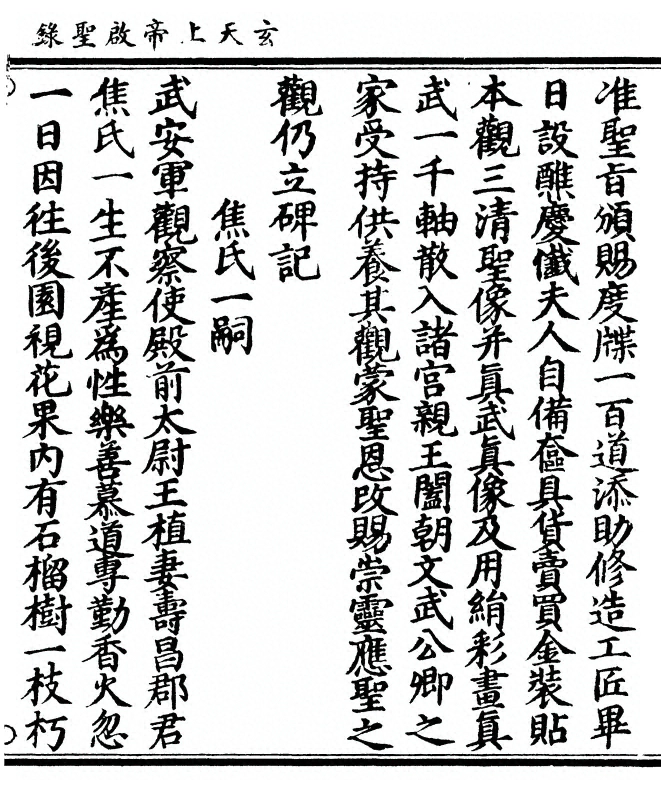 玄天上帝啟聖錄
准聖旨頒賜度牒一百道添助修造工匠畢
日設醮慶懺夫人自備奩具貨賣買金裝貼
本觀三清聖像并眞武眞像及用絹彩畫眞
武一千軸散入諸宮親王闔朝文武公卿之
家受持供養其觀蒙聖恩改賜崇靈應聖之
觀仍立碑記
焦氏一嗣
武安軍觀察使殿前太尉王植妻壽昌郡君
焦氏一生不產為性樂善慕道專勤香火忽
一日因往後園視花果內有石榴樹一枝朽